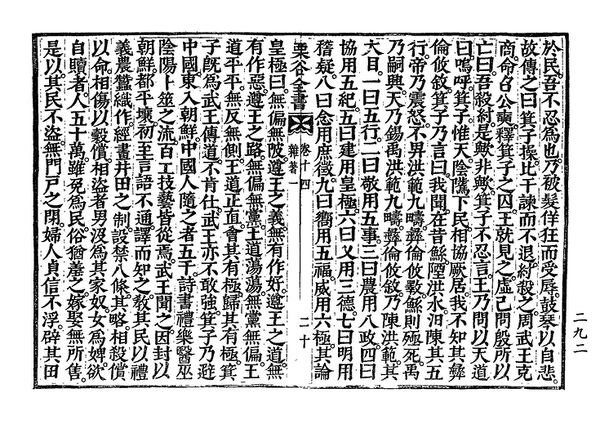 於民吾不忍爲也乃被髮佯狂而受辱鼓琴以自悲
故傳之曰箕子操比干諫而不退紂殺之周武王克
商命召公奭釋箕子之囚王就見之虛己問殷所以
亡曰吾殺紂是歟非歟箕子不忍言王乃問以天道
曰嗚呼箕子惟天陰騭下民相協厥居我不知其彝
倫攸敘箕子乃言曰我聞在昔鯀陻洪水汨陳其五
行帝乃震怒不畀洪範九疇彝倫攸斁鯀則殛死禹
乃嗣興天乃錫禹洪範九疇彝倫攸敘乃陳洪範其
大目一曰五行二曰敬用五事三曰農用八政四曰
協用五紀五曰建用皇極六曰乂用三德七曰明用
稽疑八曰念用庶徵九曰嚮用五福威用六極其論
栗谷全書 卷十四 雜著一 二十
皇極曰無偏無陂遵王之義無有作好遵王之道無
有作惡遵王之路無偏無黨王道蕩蕩無黨無偏王
道平平無反無側王道正直會其有極歸其有極箕
子旣爲武王傳道不肯仕武王亦不敢強箕子乃避
中國東入朝鮮中國人隨之者五千詩書禮樂醫巫
陰陽卜筮之流百工技藝皆從焉武王聞之因封以
朝鮮都平壤初至言語不通譯而知之敎其民以禮
義農蠶織作經畫井田之制設禁八條其略相殺償
以命相傷以穀償相盜者男沒爲其家奴女爲婢欲
自贖者人五十萬雖免爲民俗猶羞之嫁娶無所售
是以其民不盜無門戶之閉婦人貞信不淫辟其田
二九二